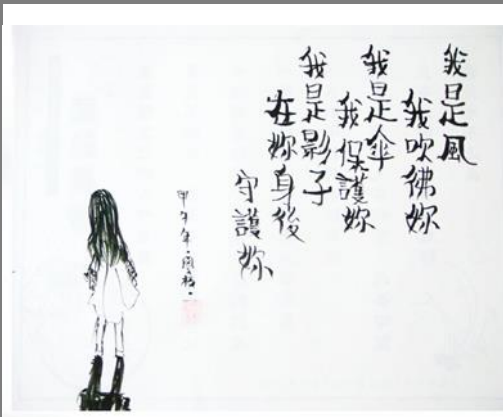 我是風
我吹彿妳
我是傘
我保護妳
我是影子
在妳身後
守護妳
甲午年